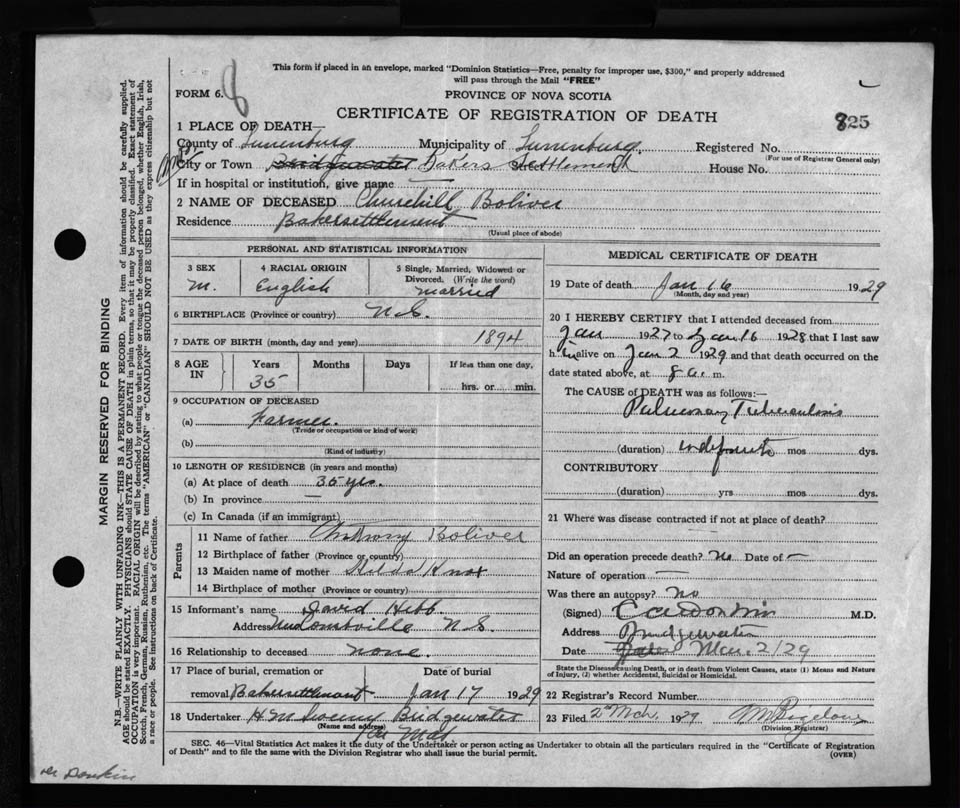 This form if placed in an envelope, marked "Dominion Statistics—Free, penalty for improper use, $300," and properly addressed
will pass through the Mail "FREE"
FORM 6. 8
PROVINCE OF NOVA SCOTIA
CERTIFICATE OF REGISTRATION OF DEATH
825
1 PLACE OF DEATH—
County of Lunenburg Municipality of Lunenburg Registered No.
(For use of Registrar General only)
City or Town Bridgewater Bakers Street Settlement House No.
If in hospital or institution, give name —
2 NAME OF DECEASED Churchill Boliver
Residence Bakersettlement
(Usual place of abode)
PERSONAL AND STATISTICAL INFORMATION
3 SEX M. 4 RACIAL ORIGIN English 5 Single, Married, Widowed or Divorced. (Write the word) married
6 BIRTHPLACE (Province or country) N.S.
7 DATE OF BIRTH (month, day and year) 1894
8 AGE IN Years 35 Months Days If less than one day, hrs. or min.
9 OCCUPATION OF DECEASED
(a) Farmer.
(Trade or occupation or kind of work)
(b)
(Kind of industry)
10 LENGTH OF RESIDENCE (in years and months)
(a) At place of death 35 yrs.
(b) In province —
(c) In Canada (if an immigrant)
Parents
11 Name of father Anthony Boliver
12 Birthplace of father (Province or country)
13 Maiden name of mother Knox
14 Birthplace of mother (Province or country)
15 Informant's name David Hebb
Address N.S.
16 Relationship to deceased none.
17 Place of burial, cremation or Date of burial
removal Bakersettlement Jan 17 1929
18 Undertaker Bridgewater
(Name and address)
MEDICAL CERTIFICATE OF DEATH
19 Date of death Jan 16 1929
(Month, day and year)
20 I HEREBY CERTIFY that I attended deceased from
Jan 1927 to Jan 16 1928 that I last saw
him alive on Jan 2 1929 and that death occurred on the
date stated above, at 8 a. m.
The CAUSE of DEATH was as follows:—
Pulmonary Tuberculosis
(duration) indefinite mos dys.
CONTRIBUTORY
(duration) yrs mos dys.
21 Where was disease contracted if not at place of death?
Did an operation precede death? No Date of —
Nature of operation —
Was there an autopsy? No
(Signed) M.D.
Address Bridgewater
Date Mar. 2/29
State the Disease causing Death, or in death from Violent Causes, state (1) Means and Nature
of Injury, (2) whether Accidental, Suicidal or Homicidal.
22 Registrar's Record Number
23 Filed 2 Mch. 1929
(Division Registrar)
SEC. 46—Vital Statistics Act makes it the duty of the Undertaker or person acting as Undertaker to obtain all the particulars required in the "Certificate of Registration
of Death" and to file the same with the Division Registrar who shall issue the burial permit. (OVER)
MARGIN RESERVED FOR BINDING
N.B.—WRITE PLAINLY WITH UNFADING INK—THIS IS A PERMANENT RECORD. Every item of information should be carefully supplied.
AGE should be stated EXACTLY. PHYSICIANS should STATE CAUSE OF DEATH in plain terms, so that it may be properly classified. Exact statement of
OCCUPATION is very important. RACIAL ORIGIN will be described by stating to what people or tongue the deceased person belonged, whether English, Irish,
Scotch, French, German, Russian, Ruthenian, etc. The terms "AMERICAN" or "CANADIAN" SHOULD NOT BE USED as they express citizenship but not
a race or people. See instructions on back of Certificate.
Dr Donkin